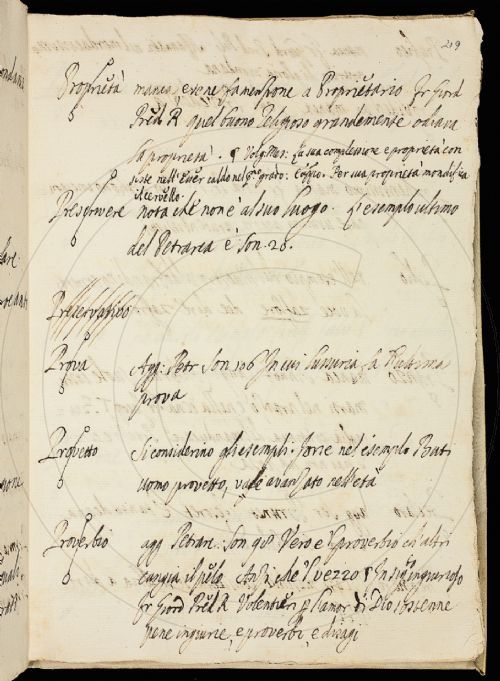 219
Proprietà manca, e se ne fa menzione a Proprietario Fr Giord
Pred. R quel buono Religioso grandemente odiava
la proprietà. ¶ Volg. Mes. La sua complessione e proprietà con
siste nell'esser caldo nel pmo grado: Coppie. Per sua proprietà mondifica
il cervello.
Prescrivere nota che non è al suo luogo. L'esempio ultimo
del Petrarca è Son. 28.
Preservativo
Prova Agg: Petr Son 106 In cui Lussuria fa l'ultima
prova
Provetto Si considerino gli esempli. Forse nel esemplo Buti
uomo provetto, vale avanzato nell'età
Proverbio agg Petrar. Son 98 Vero è 'l proverbio ch'altri
cangia il pelo Anzi che 'l vezzo ¶ In sig ingiurioso
Fr Giord Pred. R Volentieri p l'amor di Dio sostenne
pene ingiurie, e proverbi, e disagi